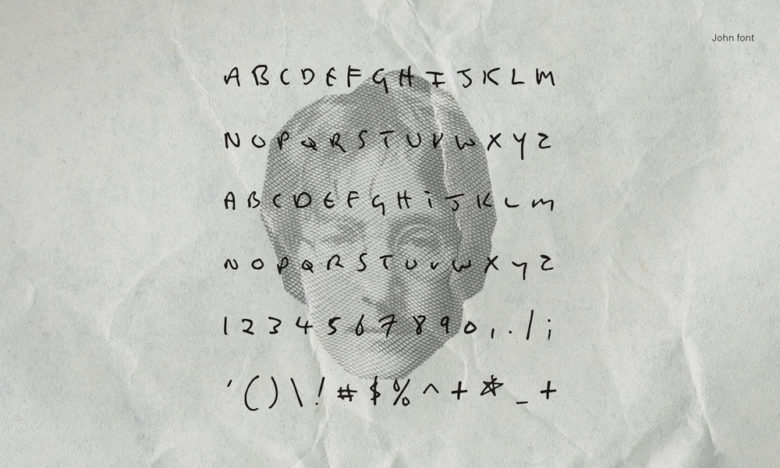 John font
A B C D E F G H I J K L M
N O P Q R S T U V W X Y Z
A B C D E F G H i J K L M
N O P Q R S T U V W X Y Z
1 2 3 4 5 6 7 8 9 0 , . / ;
' ( ) \ ! # $ % ^ + * _ +